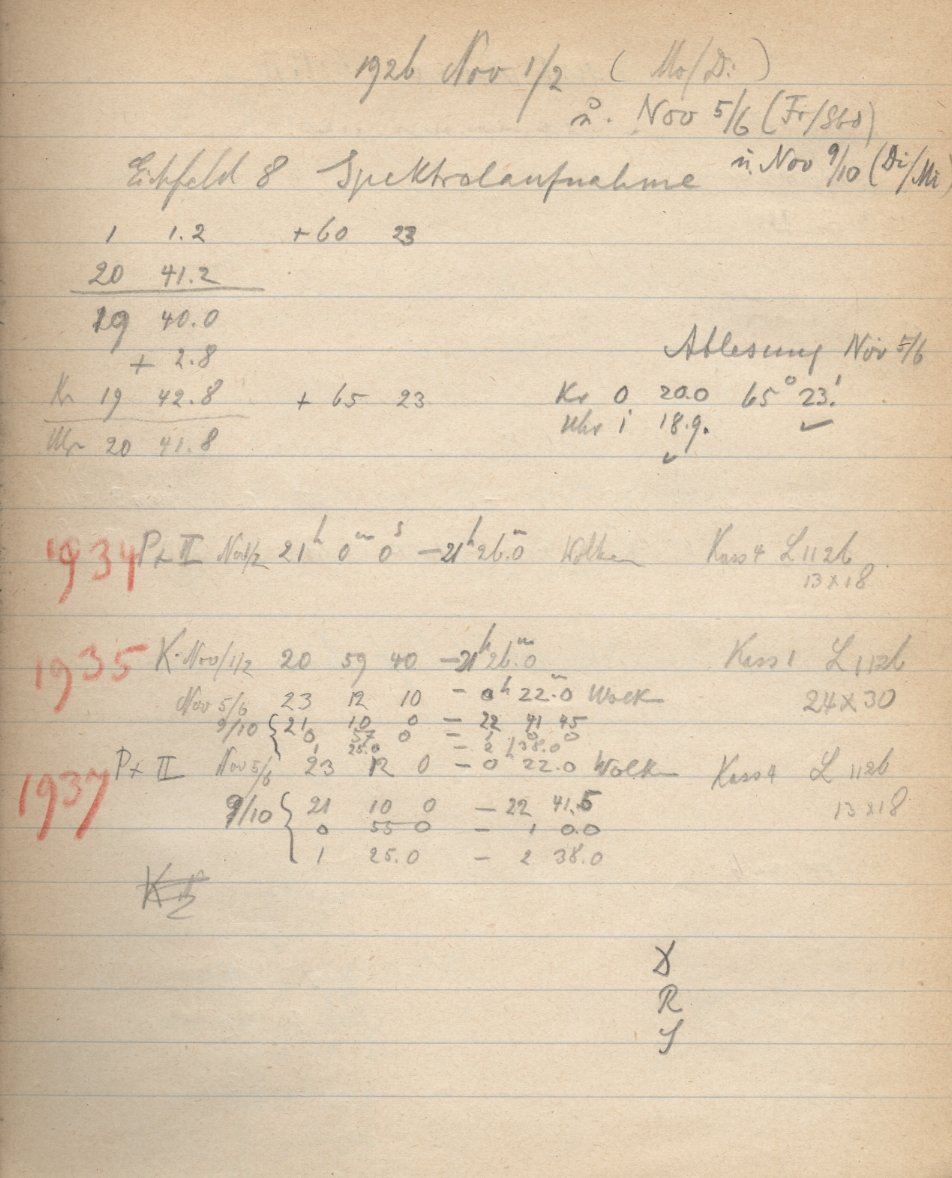 1926 Nov 1/2 ( Mo/Di )
u. Nov 5/6 (Fr/Sbd)
u. Nov 9/10 (Di/Mi)
Eichfeld 8 Spektralaufnahme
1 1.2 +60 23
20 41.2
19 40.0
+ 2.8
Ablesung Nov 5/6
Kr 19 42.8 + 65 23 Kr 0 20.0 65° 23'
Uhr 20 41.8 Uhr 1 18.9.
1934 P+ II Nov 1/2 21h 0m 0s – 21h 26m.0 Wolken Kass 4 L 112b
13 x 18
1935 K. Nov 1/2 20 59 40 – 21h 26m.0 Kass 1 L 112b
Nov 5/6 23 12 10 – 0h 22m.0 Wolk 24 x 30
9/10 { 21 10 0 – 22 41 45
0 57 0 – 1 0 0
1 25.0 – 2 38.0
1937 P+ II Nov 5/6 23 12 0 – 0h 22m.0 Wolk Kass 4 L 112b
9/10 { 21 10 0 – 22 41.5 13 x 18
0 55 0 – 1 0.0
1 25.0 – 2 38.0
D
R
S